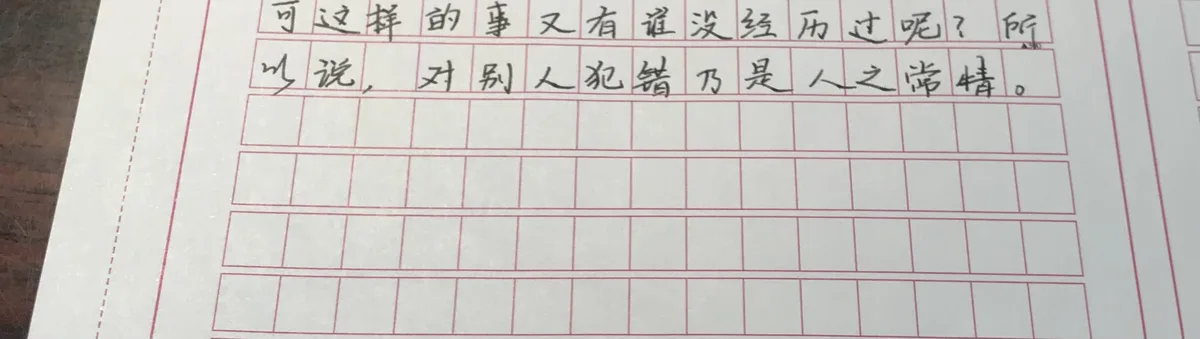 可这样的事又有谁没经历过呢？所
以说，对别人犯错乃是人之常情。